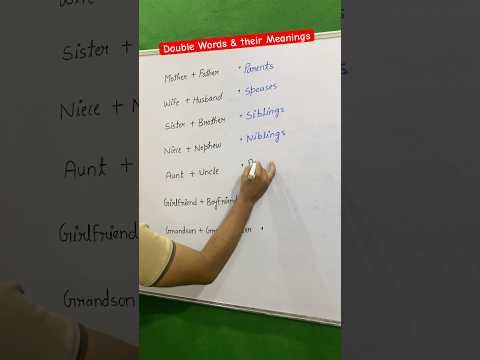 Double Words & their Meanings
Mother + Father • Parents
Wife + Husband • Spouses
Sister + Brother • Siblings
Niece + Nephew • Niblings
Aunt + Uncle •
Girlfriend + Boyfriend
Grandson +
Sister +
Niece +
Girlfriend
Grandson